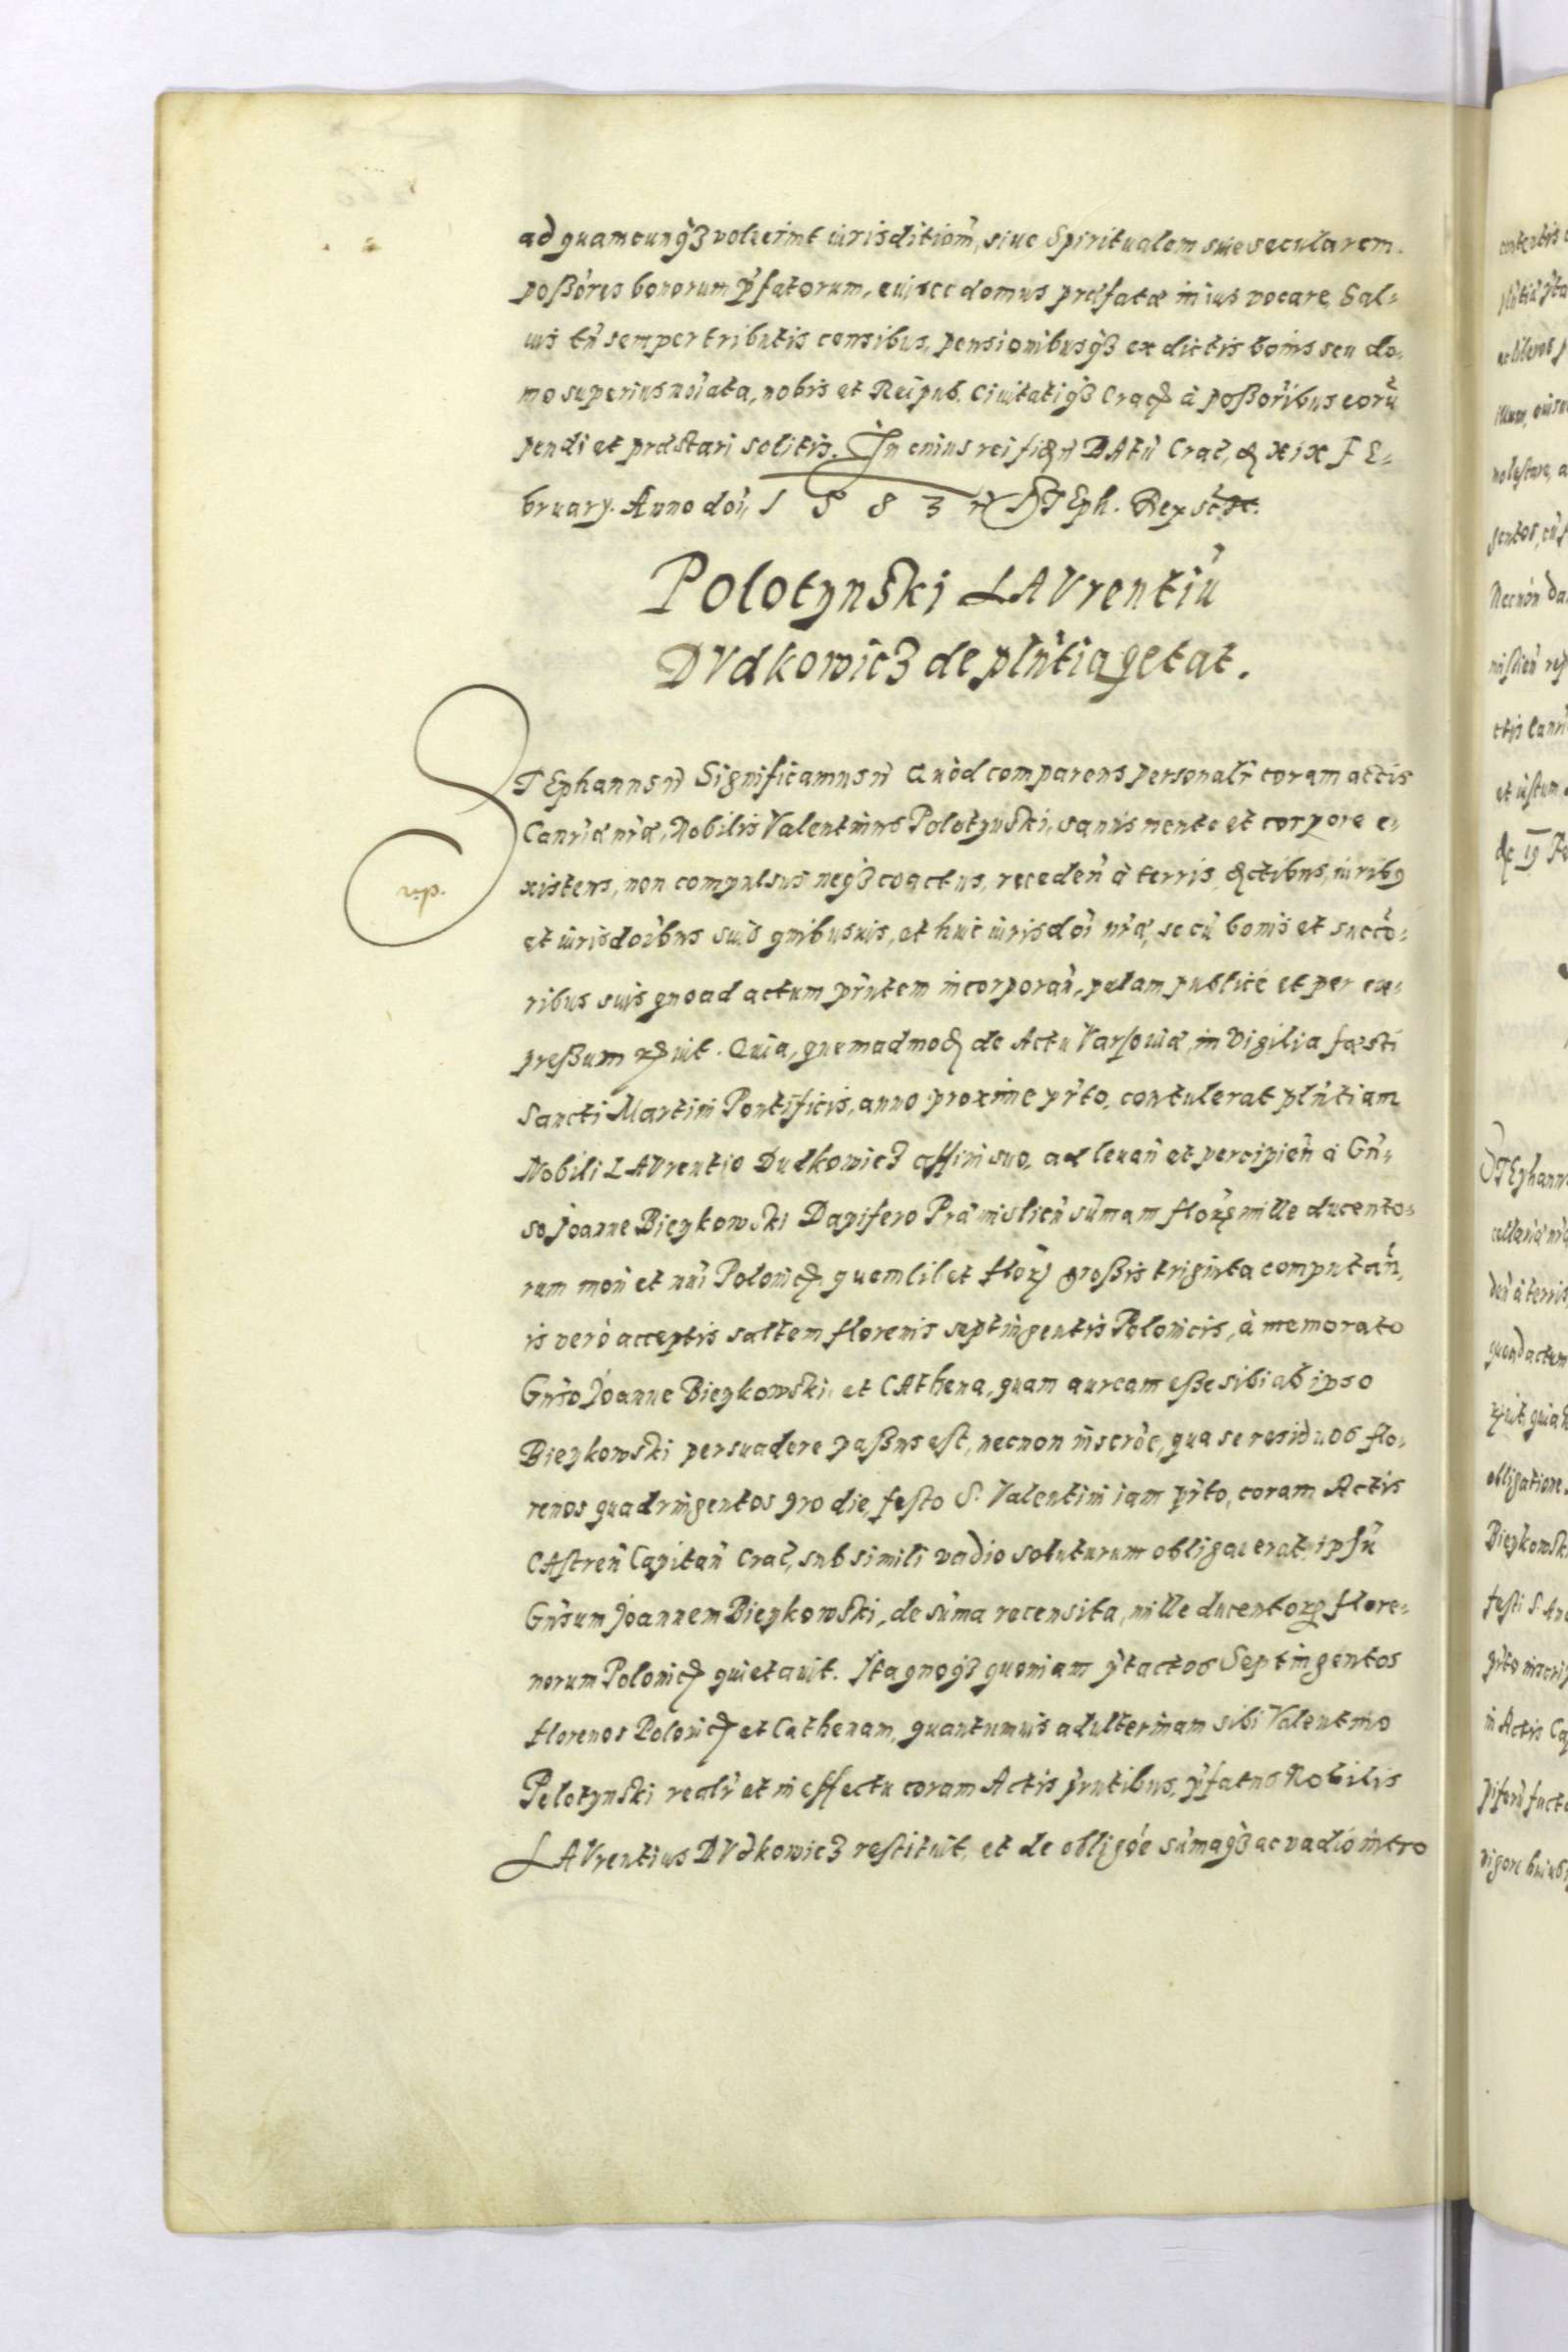 ad quamcunqꝫ voluerint iurisditiom̃, siue Spiritualem siue secularem.
poßores bonorum p̃fatorum, eiusce domus præfatæ in ius vocare. Sal-
uis tñ semper tributis censibus, pensionibusqꝫ ex dictis bonis seu do-
mo superius nõiata, nobis et Reipub. Ciuitatiqꝫ Crac̃ à poßoribus eorũ
pendi et præstari solitis. In cuius rei fidẽ ñ DAtũ Crac̃, d xix FE-
bruarÿ. Anno doĩ, 1 5 8 3 ñ STEph. Rex sc̃t.
Polotynski LAVrentiũ
DVdkowicꝫ de plñtia qetat.
STEphanus ñ Significamus ñ Quòd comparens personalr̃ coram actis
Canr̃iæ nr̃æ, Nobilis Valentinus Polotynski, sanus mente et corpore e-
xistens, non compulsus neqꝫ coactus, recedeñ à terris, dictibus, iuribꝰ
et iurisdoĩbus suis qnibusuis, et huic iurisdoĩ nr̃æ, se cũ bonis et succo-
ribus suis quoad actum pr̃ntem incorporañ, palam publicè et per ex-
preßum rẽuit. Quia, quemadmodũ de Actu Varsouiæ, in Vigilia fæsti
Sancti Martini Pontificis, anno proxime pr̃to, contulerat plñtiam
Nobili LAVrentio Dudkowicꝫ affini suo, ad leuañ et percipieñ à Gñ-
so Joanne Bieykowski Dapifero Præmislieñ sũmam florꝝ mille ducento-
rum moñ et nũi Polonic̃, quemlibet flor̃ großis triginta computañ,
is verò acceptis saltem florenis septingentis Polonicis, à memorato
Gñso Joanne Bieykowski et CAthena, quam auream eße sibi ab ipso
Bieykowski persuadere paßus est, necnon inscrõe, qua se residuos flo-
renos quadringentos pro die, festo S. Valentini iam pr̃to, coram Actis
CAstreñ Capitañ Crac̃, sub simili vadio soluturum obligauerat, ipsũ
Gñsum Joannem Bieykowski, de sũma recensita, mille ducentorꝝ flore-
norum Polonic̃ quietauit. Ita quoqꝫ quoniam p̃tactos Septingentos
florenos Polonic̃ et Cathenam, quantumuis adulterinam sibi Valentino
Polotynski realr̃ et in effectu coram Actis pr̃ntibus, p̃fatus Nobilis
LAVrentius DVdkowicꝫ restituit, et de obligõe sũmaqꝫ ac vadio intro